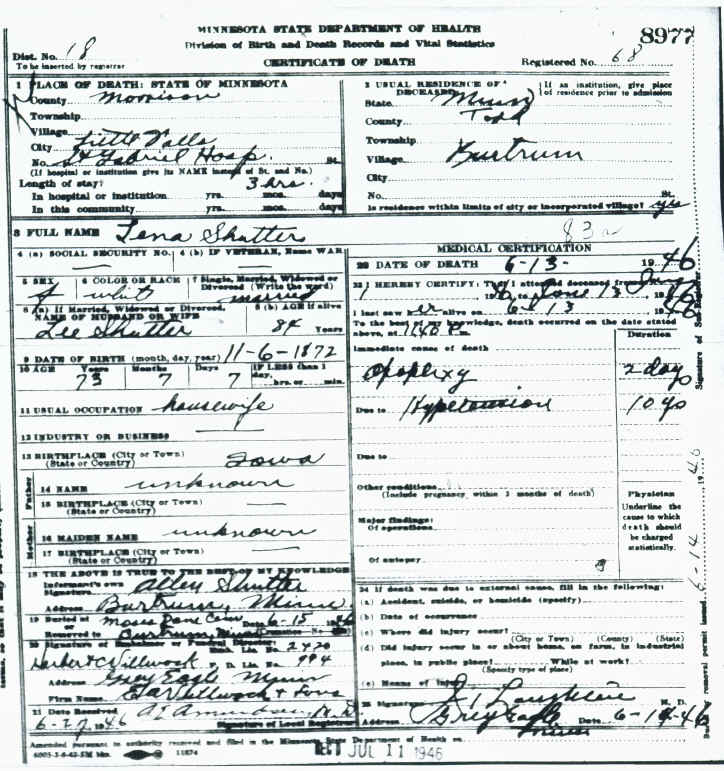 MINNESOTA STATE DEPARTMENT OF HEALTH
Division of Birth and Death Records and Vital Statistics
8977
Dist. No. 18
To be inserted by registrar
CERTIFICATE OF DEATH
Registered No. 68
1 PLACE OF DEATH: STATE OF MINNESOTA
County Morrison
Township
Village
City Little Falls
No. St Gabriel Hosp. St.
(If hospital or institution give its NAME instead of St. and No.)
Length of stay? 3 hrs.
In hospital or institution yrs. mos. days
In this community yrs. mos. days
2 USUAL RESIDENCE OF DECEASED
(If an institution, give place of residence prior to admission
State Minn
County Todd
Township
Village Burtrum
City
No. St.
Is residence within limits of city or incorporated village? yes
3 FULL NAME Lena Shutter
83a
4 (a) SOCIAL SECURITY NO. 4 (b) IF VETERAN, Name WAR
5 SEX 6 COLOR OR RACE 7 Single, Married, Widowed or Divorced (Write the word)
F white married
8 (a) If Married, Widowed or Divorced, NAME OF HUSBAND OR WIFE 8 (b) AGE if alive
Lee Shutter 84 Years
9 DATE OF BIRTH (month, day, year) 11-6-1872
10 AGE Years Months Days IF LESS than 1 day,
73 7 7 hrs. or min.
11 USUAL OCCUPATION housewife
12 INDUSTRY OR BUSINESS
13 BIRTHPLACE (City or Town) (State or Country) Iowa
Father
14 NAME unknown
15 BIRTHPLACE (City or Town) (State or Country)
Mother
16 MAIDEN NAME unknown
17 BIRTHPLACE (City or Town) (State or Country)
18 THE ABOVE IS TRUE TO THE BEST OF MY KNOWLEDGE
Informant's own Signature Allen Shutter
Address Burtrum, Minn
19 Buried at Moses Dane Cem Date 6-15 1946
or Removed to Burtrum Minn Cremation No.
20 Signature of Embalmer or Funeral Director Emb. Lic. No. 2420
Herbert C Villwock F. D. Lic. No. 994
Address Grey Eagle Minn
Firm Name Villwock & Sons
21 Date Received
6-27 1946
Signature of Local Registrar
MEDICAL CERTIFICATION
22 DATE OF DEATH 6-13- 1946
23 I HEREBY CERTIFY: That I attended deceased from
June 13, 1946
I last saw her alive on 6-13 1946
To the best of my knowledge, death occurred on the date stated above, at 11:40 P m
Immediate cause of death Duration
Apoplexy 2 days
Due to Hypertension 10 yo
Due to
Other conditions
(Include pregnancy within 3 months of death)
Major findings:
Of operations
Of autopsy
Physician
Underline the cause to which death should be charged statistically.
24 If death was due to external cause, fill in the following:
(a) Accident, suicide, or homicide (specify)
(b) Date of occurrence
(c) Where did injury occur?
(City or Town) (County) (State)
(d) Did injury occur in or about home, on farm, in industrial place, in public place? While at work?
(Specify type of place)
(e) Means of injury
25 Signature M. D.
Address Grey Eagle Minn Date 6-14-46
Amended pursuant to authority received and filed in the Minnesota State Department of Health on
11874
REC'D JUL 11 1946
6-14 1946
removal permit issued